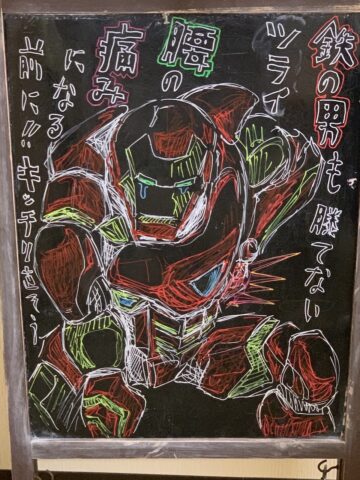 鉄の男も勝てない
ツライ
腰の
痛み
になる
前に!!キッチリ